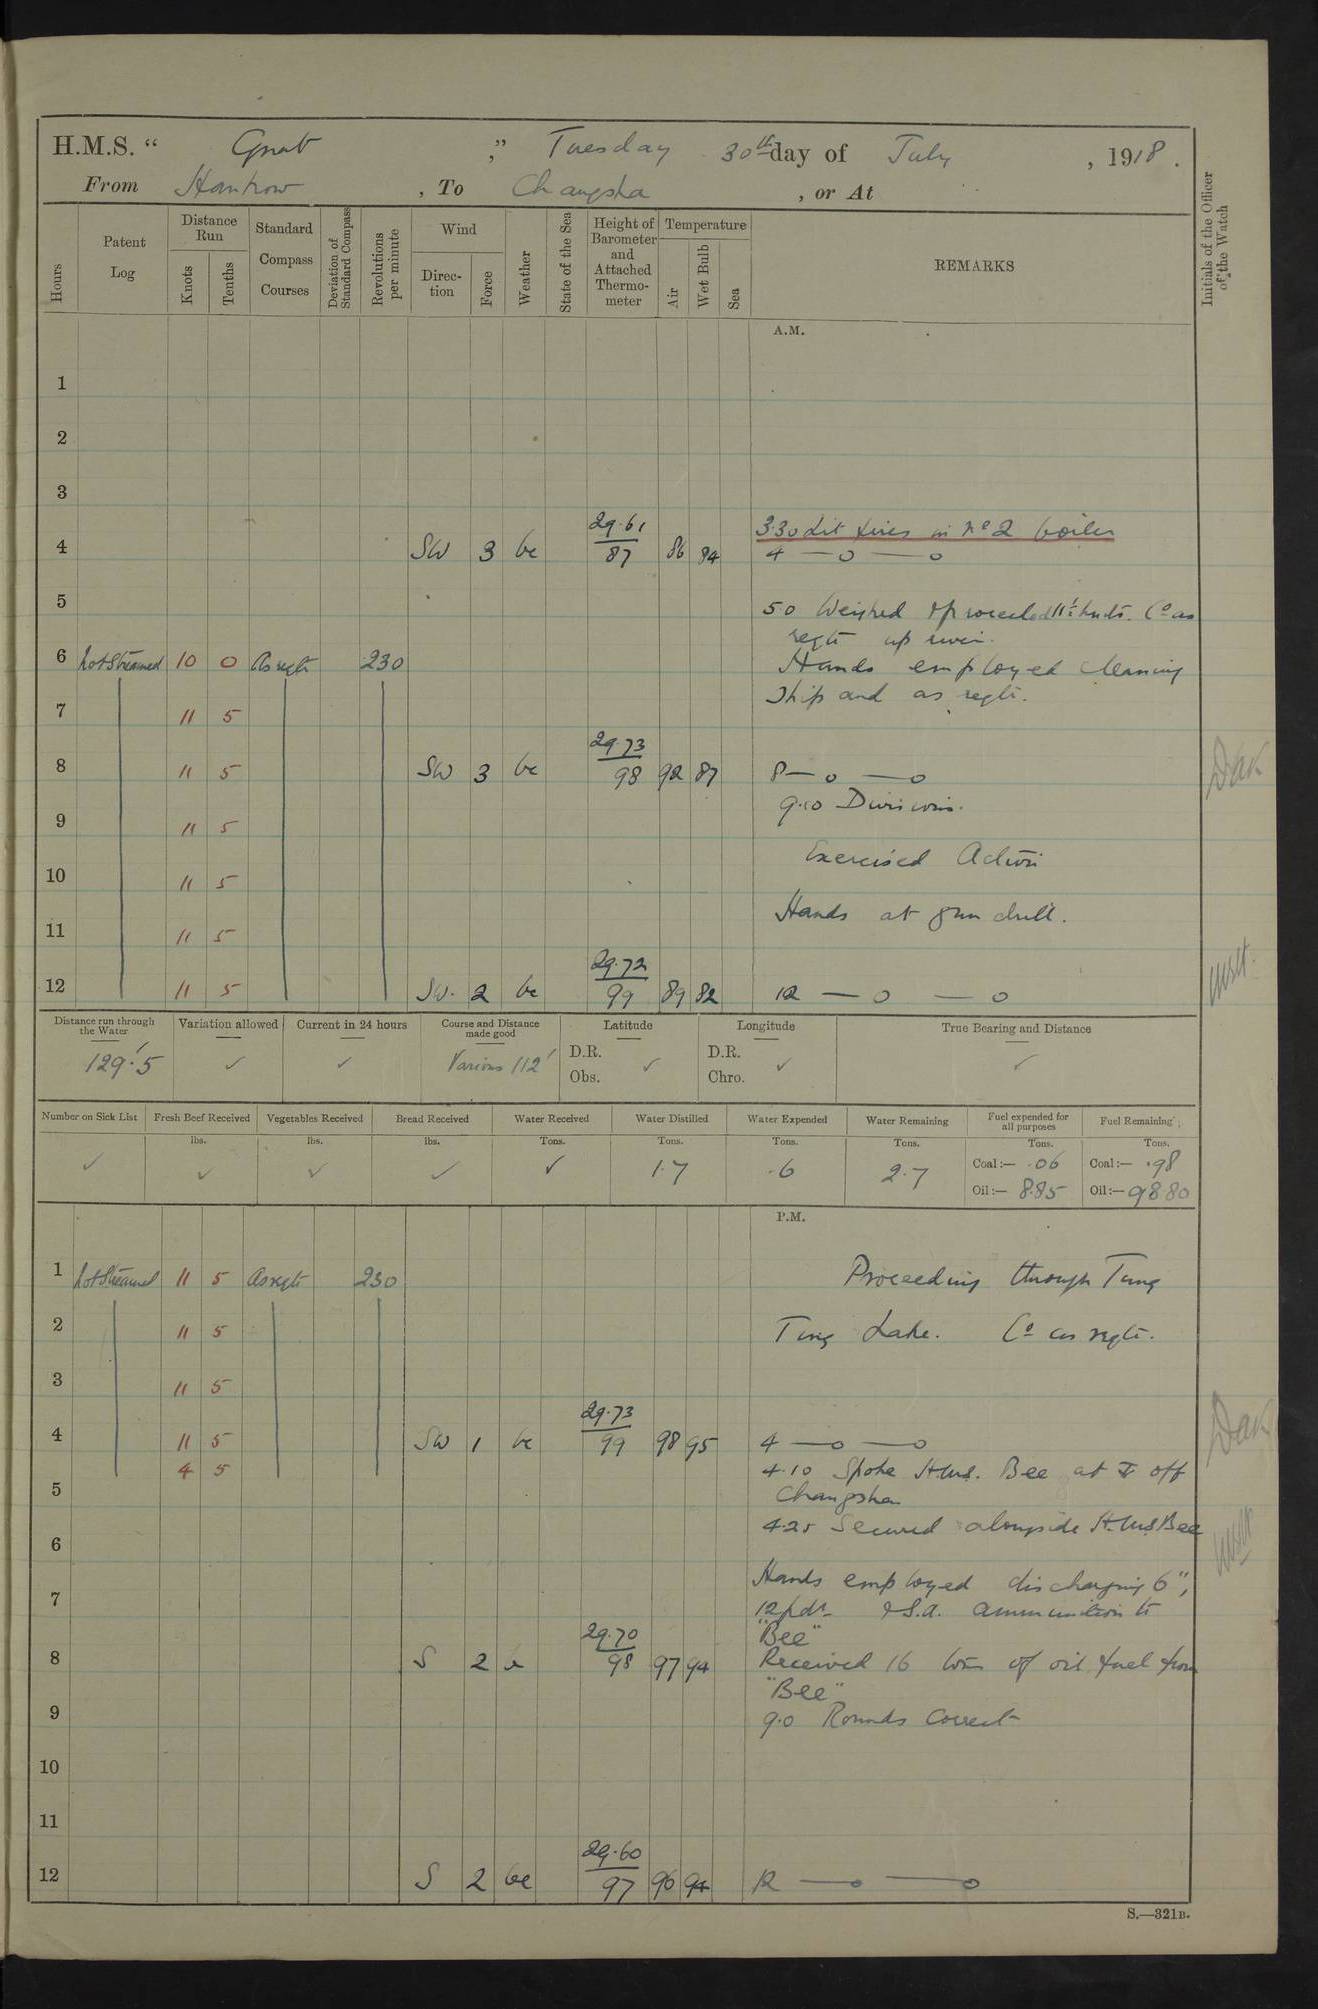 H.M.S. “ Gnat ,” Tuesday 30th day of July , 1918 .
From Hankow , To Changsha , or At
Hours
Patent Log
Distance Run
Knots
Tenths
Standard Compass Courses
Deviation of Standard Compass
Revolutions per minute
Wind
Direction
Force
Weather
State of the Sea
Height of Barometer and Attached Thermometer
Temperature
Air
Wet Bulb
Sea
REMARKS
Initials of the Officer of the Watch
A.M.
1
2
3
29.61 3.30 Lit fires in No 2 boiler
4 SW 3 bc 87 86 84 4 — o — o
5 5.0 Weighed & proceeded 11½ knots. Co as
reqte up river.
6 not streamed 10 0 As reqte 230 Hands employed cleaning
ship and as reqte.
7 11 5
29.73
8 11 5 SW 3 bc 98 92 87 8 — o — o Dak
9.10 Divisions.
9 11 5
Exercised Action
10 11 5
Hands at gun drill.
11 11 5
29.72
12 11 5 SW. 2 bc 99 89 82 12 — o — o
Distance run through the Water
Variation allowed
Current in 24 hours
Course and Distance made good
Latitude
Longitude
True Bearing and Distance
129.'5 ✓ ✓ Various 112' D.R. Obs. ✓ D.R. Chro. ✓ ✓
Number on Sick List
Fresh Beef Received
Vegetables Received
Bread Received
Water Received
Water Distilled
Water Expended
Water Remaining
Fuel expended for all purposes
Fuel Remaining
lbs. lbs. lbs. Tons. Tons. Tons. Tons. Tons. Tons.
✓ ✓ ✓ ✓ ✓ 1.7 .6 2.7 Coal:— .06 Coal:— .98
Oil:— 8.85 Oil:— 98.80
P.M.
1 not streamed 11 5 As reqte 230 Proceeding through Tung
2 11 5 Ting Lake. Co as reqte.
3 11 5
29.73
4 11 5 SW 1 bc 99 98 95 4 — o — o Dak
4 5 4.10 Spoke H.M.S. Bee at ⚓ off
5 Changsha
4.25 Secured alongside H.M.S Bee
6
Hands employed discharging 6",
7 12pdr & S.A. ammunition to
29.70 "Bee"
8 S 2 98 97 94 Received 16 tons of oil fuel from
"Bee"
9 9.0 Rounds Correct
10
11
29.60
12 S 2 bc 97 96 94 12 — o — o
S.—321B.